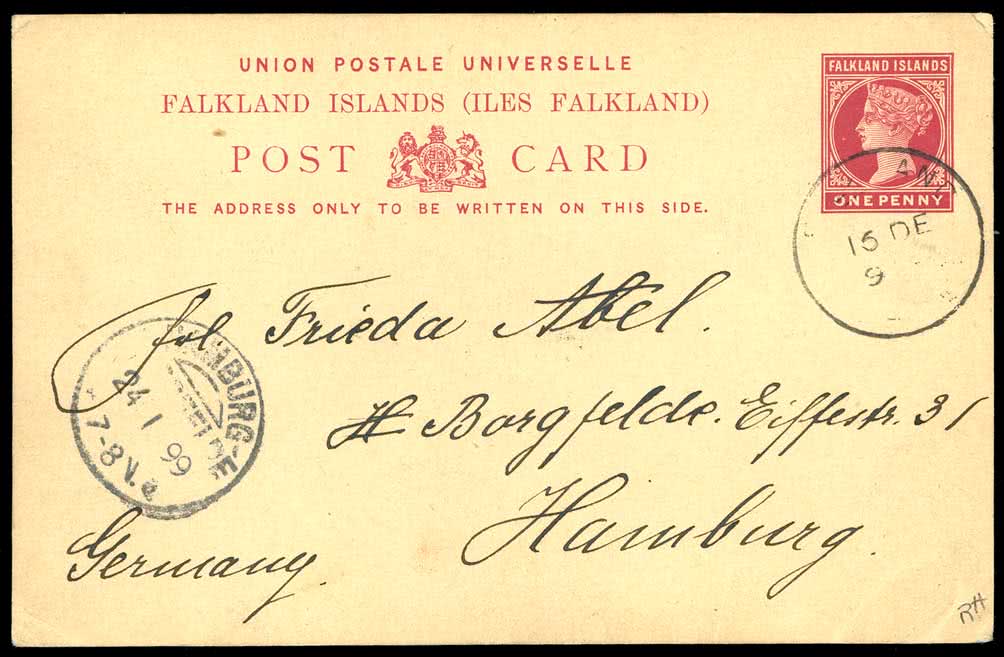 UNION POSTALE UNIVERSELLE
FALKLAND ISLANDS (ILES FALKLAND)
POST CARD
THE ADDRESS ONLY TO BE WRITTEN ON THIS SIDE.
FALKLAND ISLANDS
ONE PENNY
15 DE
9
Frieda Abel.
H Borgfelde. Eiffestr. 31
Hamburg.
Germany.
HAMBURG
24 1 99
7-8 V.
RH